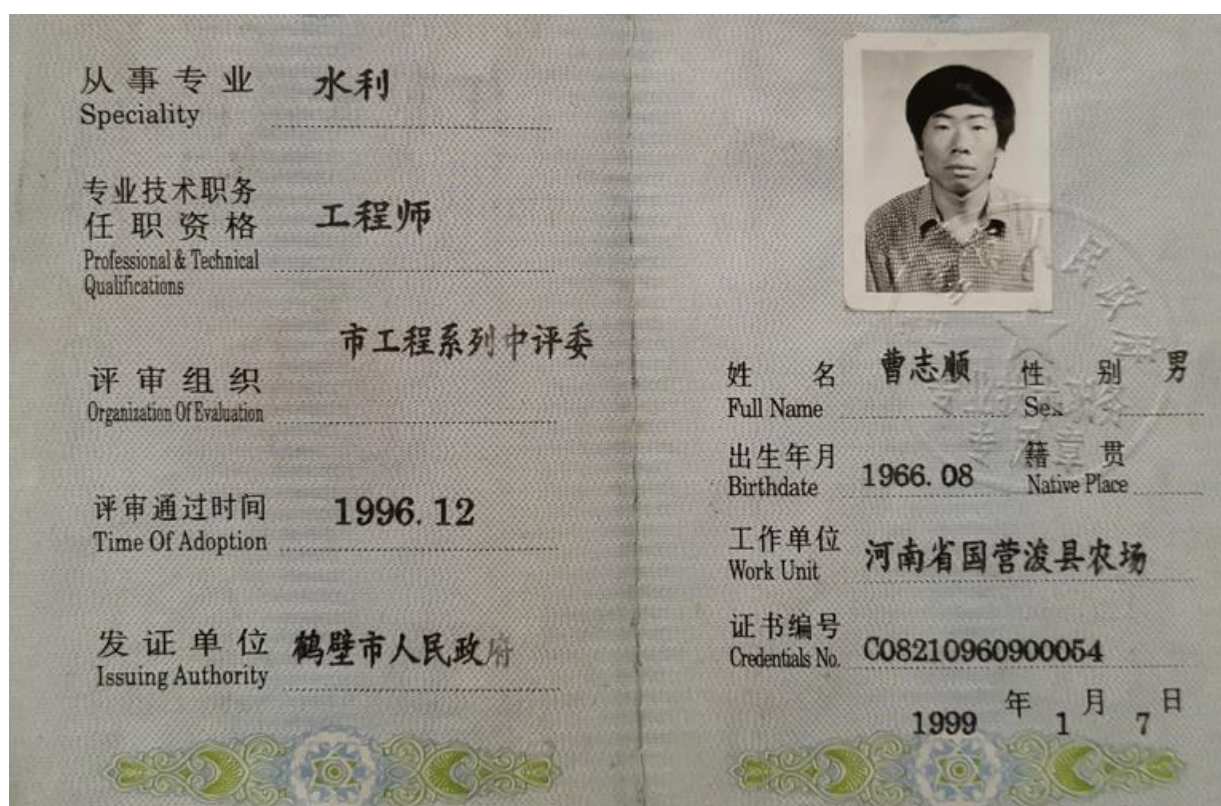 从事专业 水利
Speciality
专业技术职务
任职资格 工程师
Professional & Technical
Qualifications
市工程系列中评委
评审组织
Organization Of Evaluation
评审通过时间 1996.12
Time Of Adoption
发证单位 鹤壁市人民政府
Issuing Authority
姓名 曹志顺 性别 男
Full Name Sex
出生年月 1966.08 籍贯
Birthdate Native Place
工作单位 河南省国营浚县农场
Work Unit
证书编号 C08210960900054
Credentials No.
1999 年 1 月 7 日
专用章